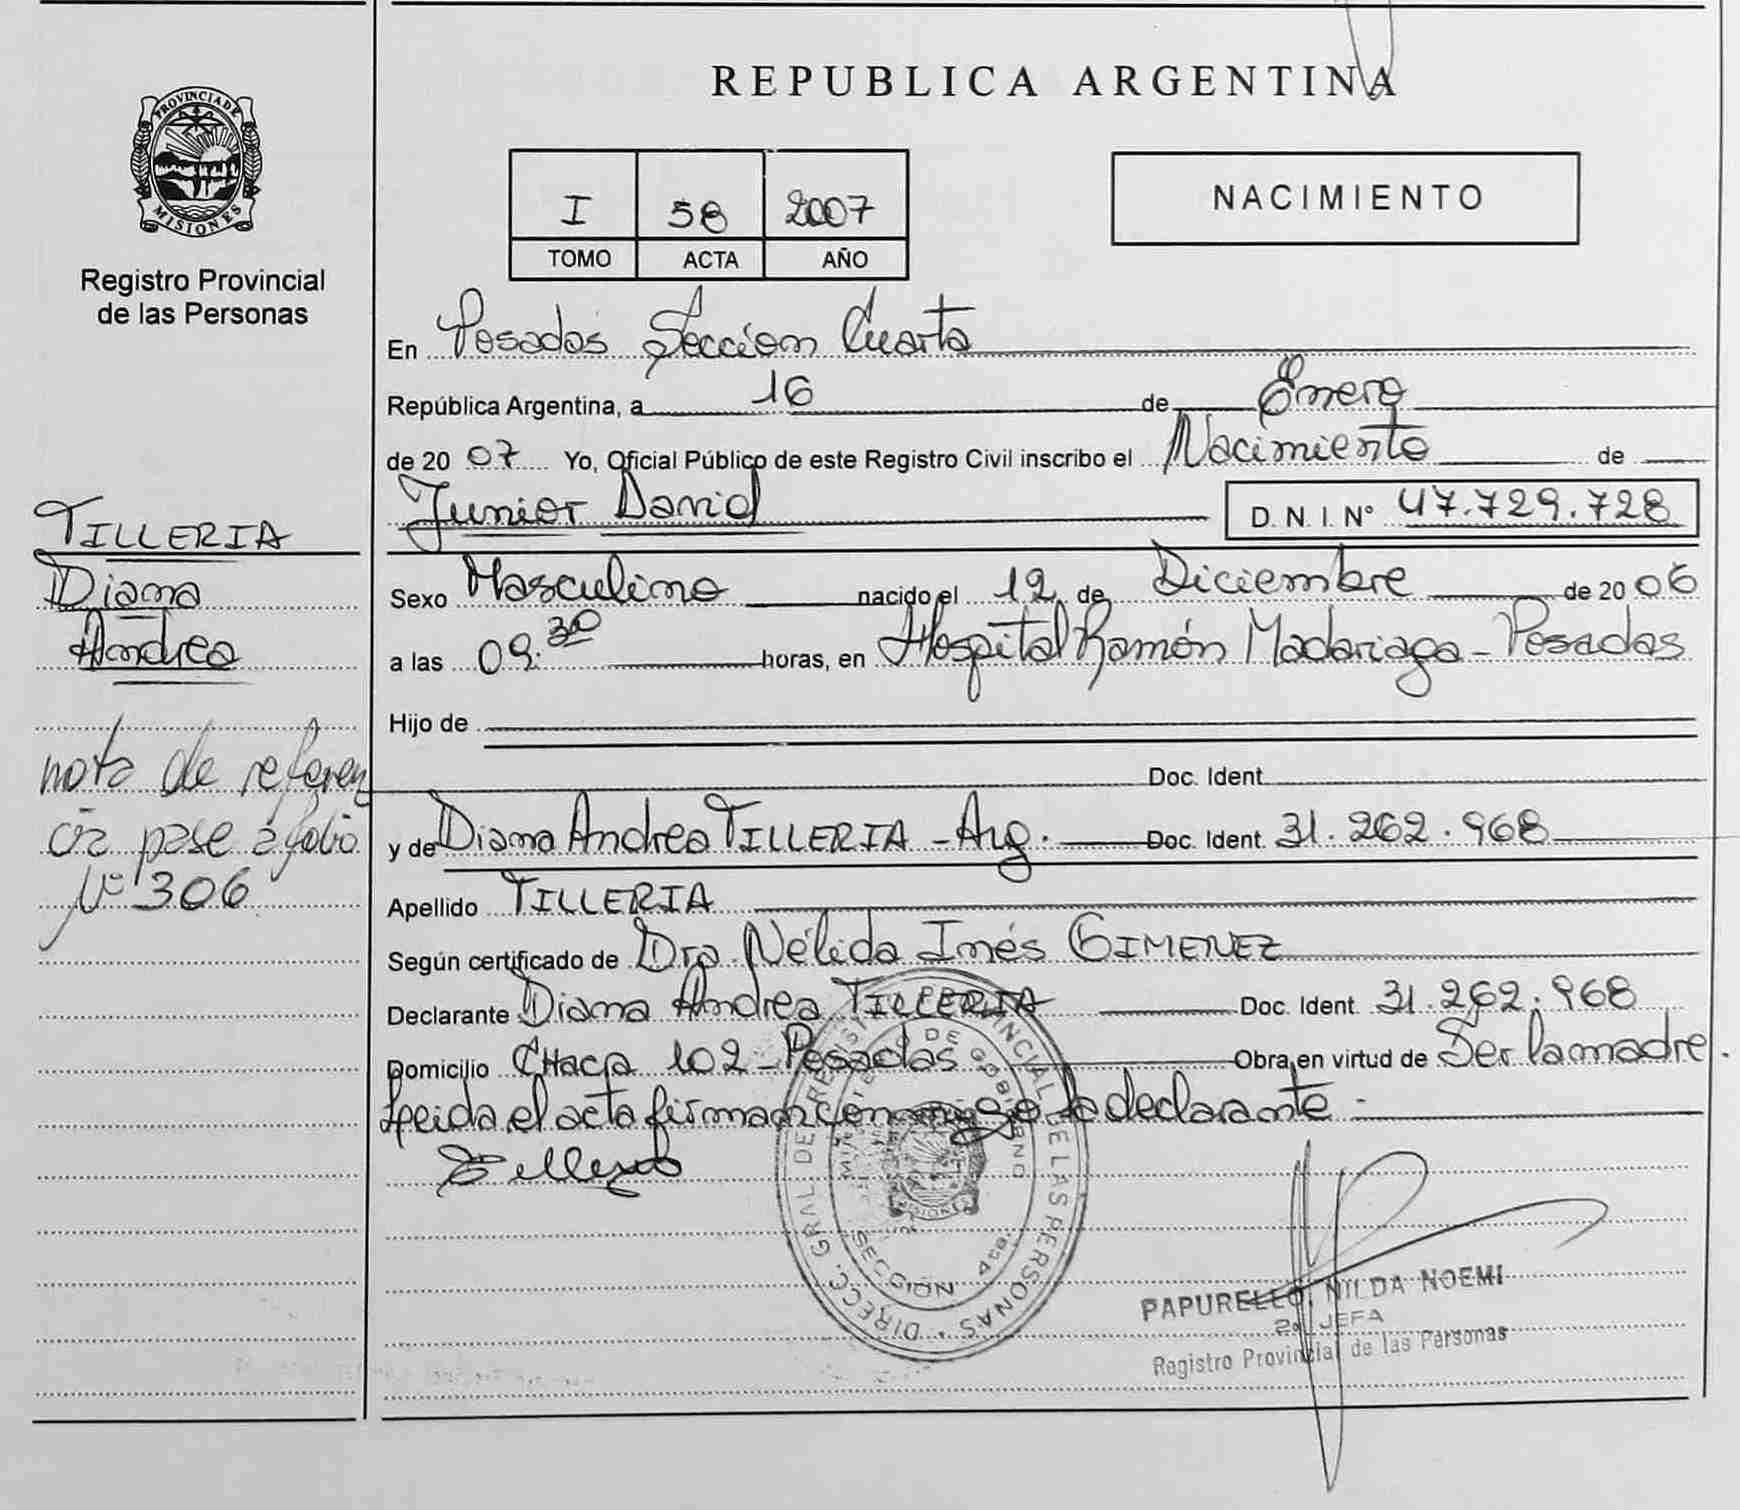 REPUBLICA ARGENTINA
PROVINCIA DE
MISIONES
Registro Provincial
de las Personas
I 58 2007
TOMO ACTA AÑO
NACIMIENTO
En Posadas Sección Cuarta
República Argentina, a 16 de Enero
de 20 07 Yo, Oficial Público de este Registro Civil inscribo el Nacimiento de
Junior David D. N. I. N° 47.729.728
Sexo Masculino nacido el 12 de Diciembre de 20 06
a las 09.30 horas, en Hospital Ramón Madariaga - Posadas
Hijo de
Doc. Ident
y de Diana Andrea TILLERIA - Arg. Doc. Ident. 31.262.968
Apellido TILLERIA
Según certificado de Dra. Nélida Inés GIMENEZ
Declarante Diana Andrea TILLERIA Doc. Ident. 31.262.968
Domicilio CHACA 102 - Posadas Obra en virtud de Ser la madre.
Leida el acta firman conmigo la declarante -
TILLERIA
Diana
Andrea
nota de referen
cia pase a folio
N° 306
DIRECC. GRAL DE REGISTRO PROVINCIAL DE LAS PERSONAS
DE GOBIERNO
MISIONES
SECCION 4ta.
PAPURELLO, NILDA NOEMI
2a JEFA
Registro Provincial de las Personas